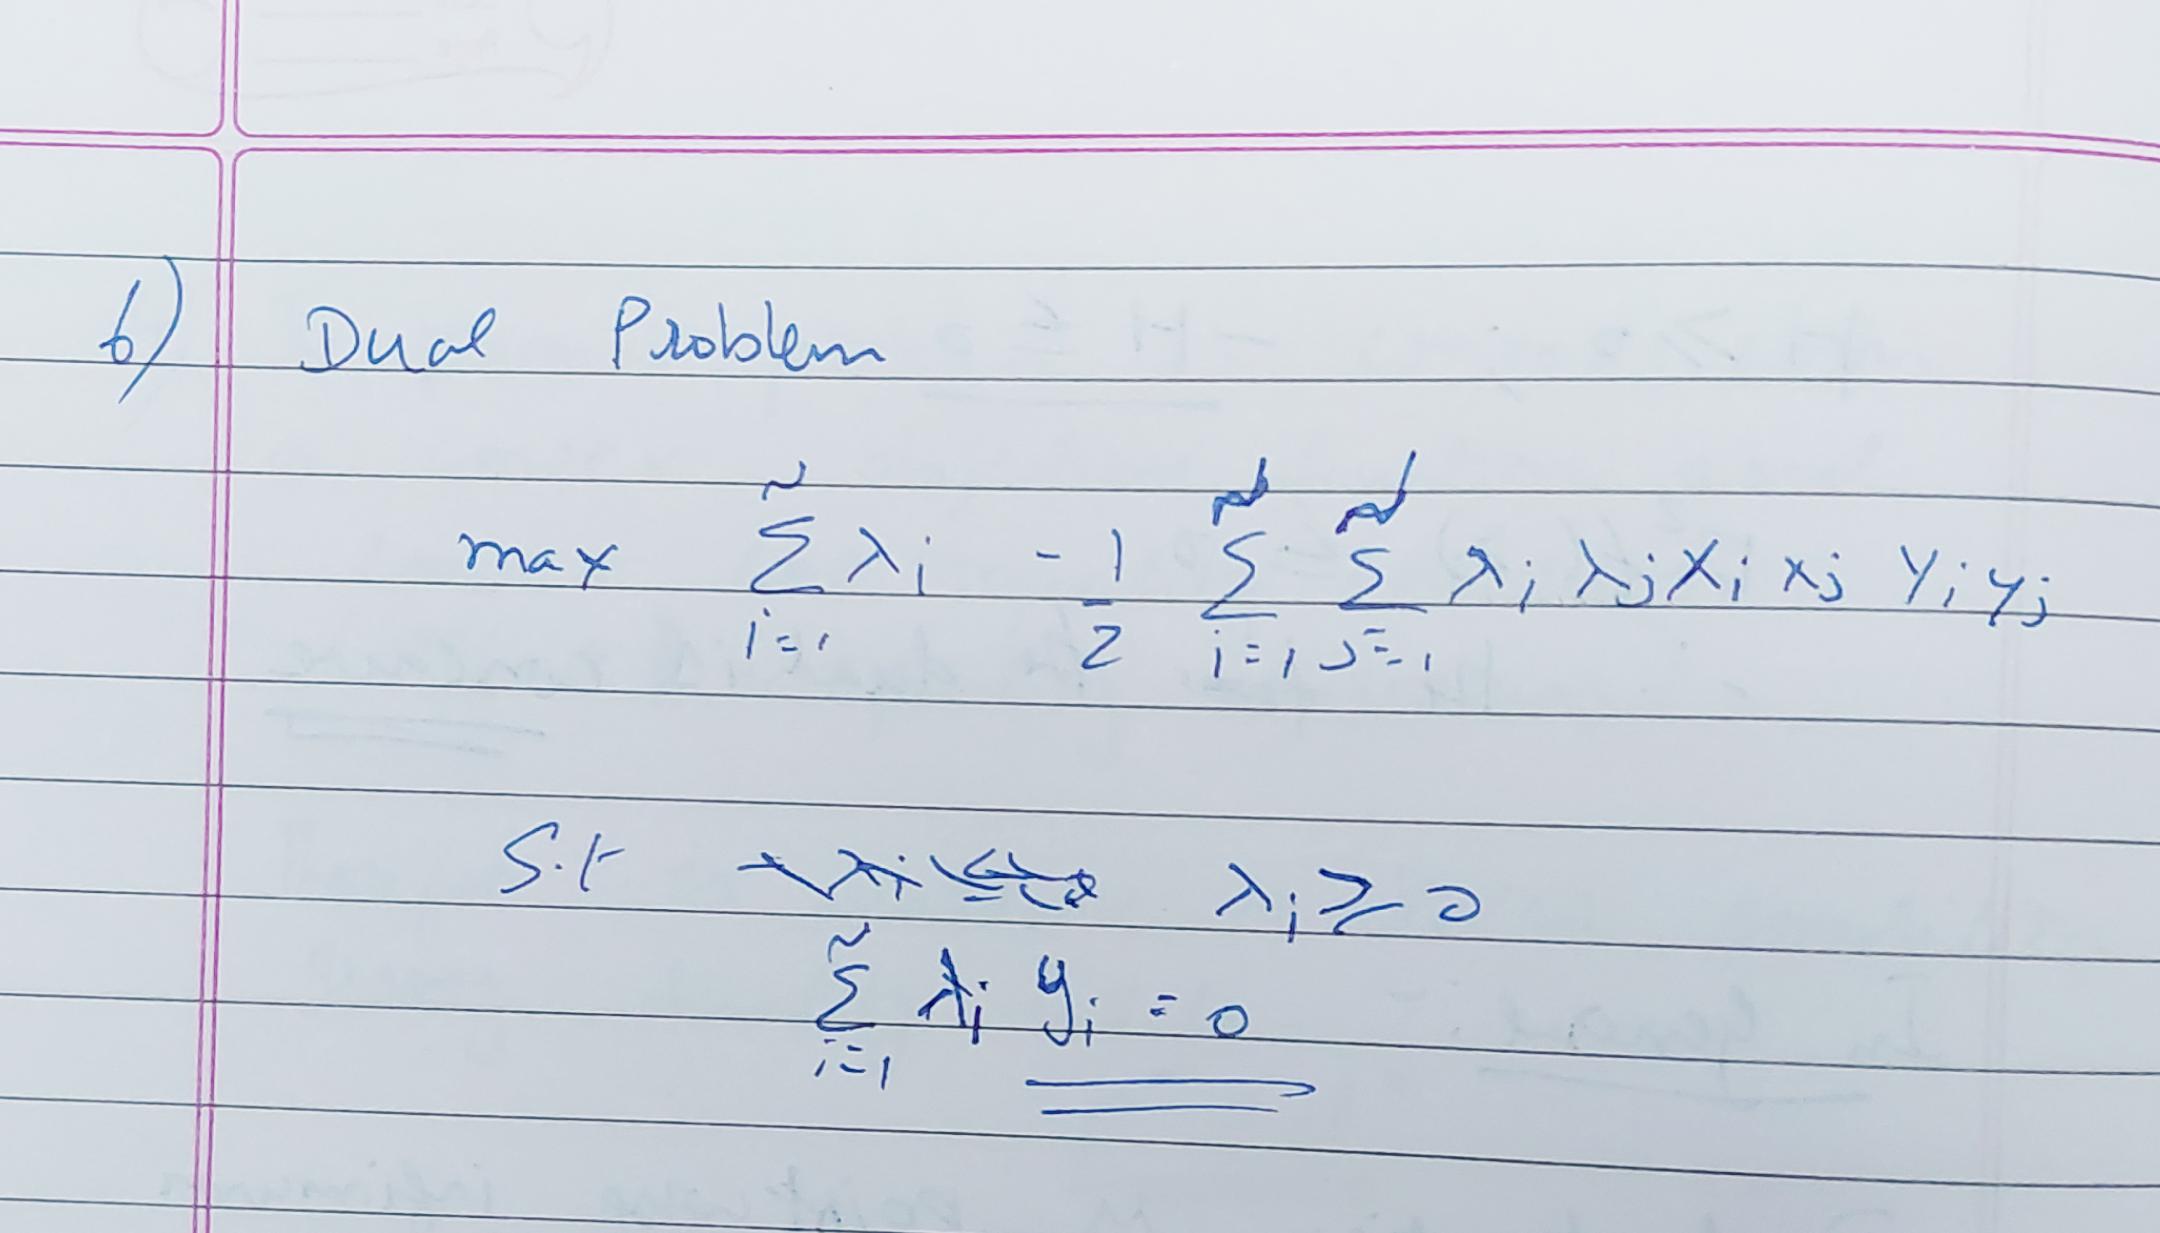 b) Dual Problem
max ∑ᵢ₌₁ⁿ λᵢ - 1/2 ∑ᵢ₌₁ ∑ⱼ₌₁ λᵢ λⱼ xᵢ xⱼ yᵢ yⱼ
S.t λᵢ ≥ 0
∑ᵢ₌₁ⁿ λᵢ yᵢ = 0